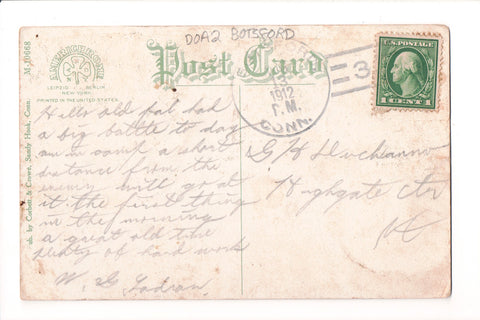 DOA2 BOTSFORD
M 10668
Post Card
LEIPZIG BERLIN
NEW YORK
PRINTED IN THE UNITED STATES.
1912
P.M.
CONN.
3
U.S. POSTAGE
1 CENT 1
ub. by Corbett & Crowe, Sandy Hook, Conn.
Hello old pal had
a big battle to day
am in camp a short
distance from the
enemy will go at
it the first thing
in the morning
a great old time
plenty of hard work
W. G.
G H
Highgate Ctr
Vt